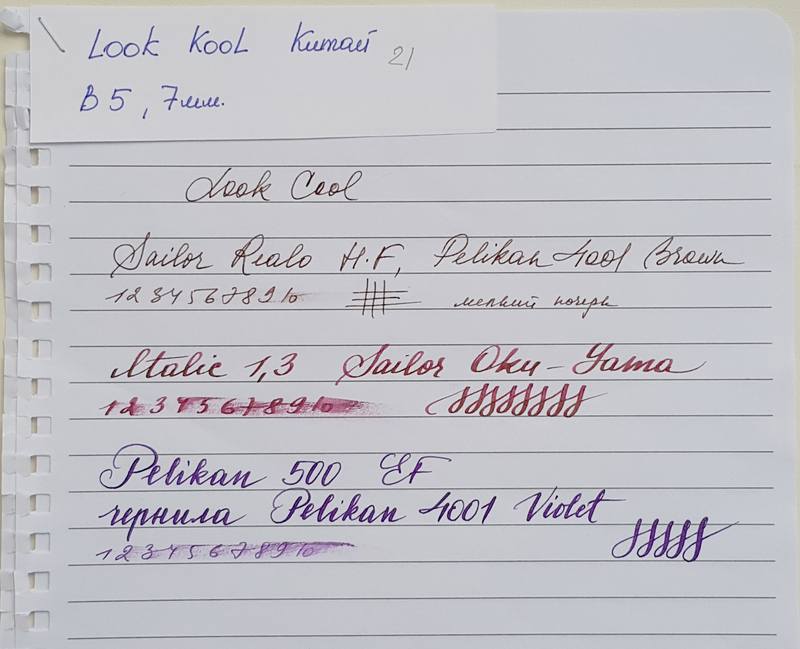 Look Kool Китай 21
В 5, 7мм.
Look Cool
Sailor Realo H.F, Pelikan 4001 Brown
12345678910 мелкий почерк
Italic 1,3 Sailor Oku-Yama
12345678910
Pelikan 500 EF
чернила Pelikan 4001 Violet
12345678910